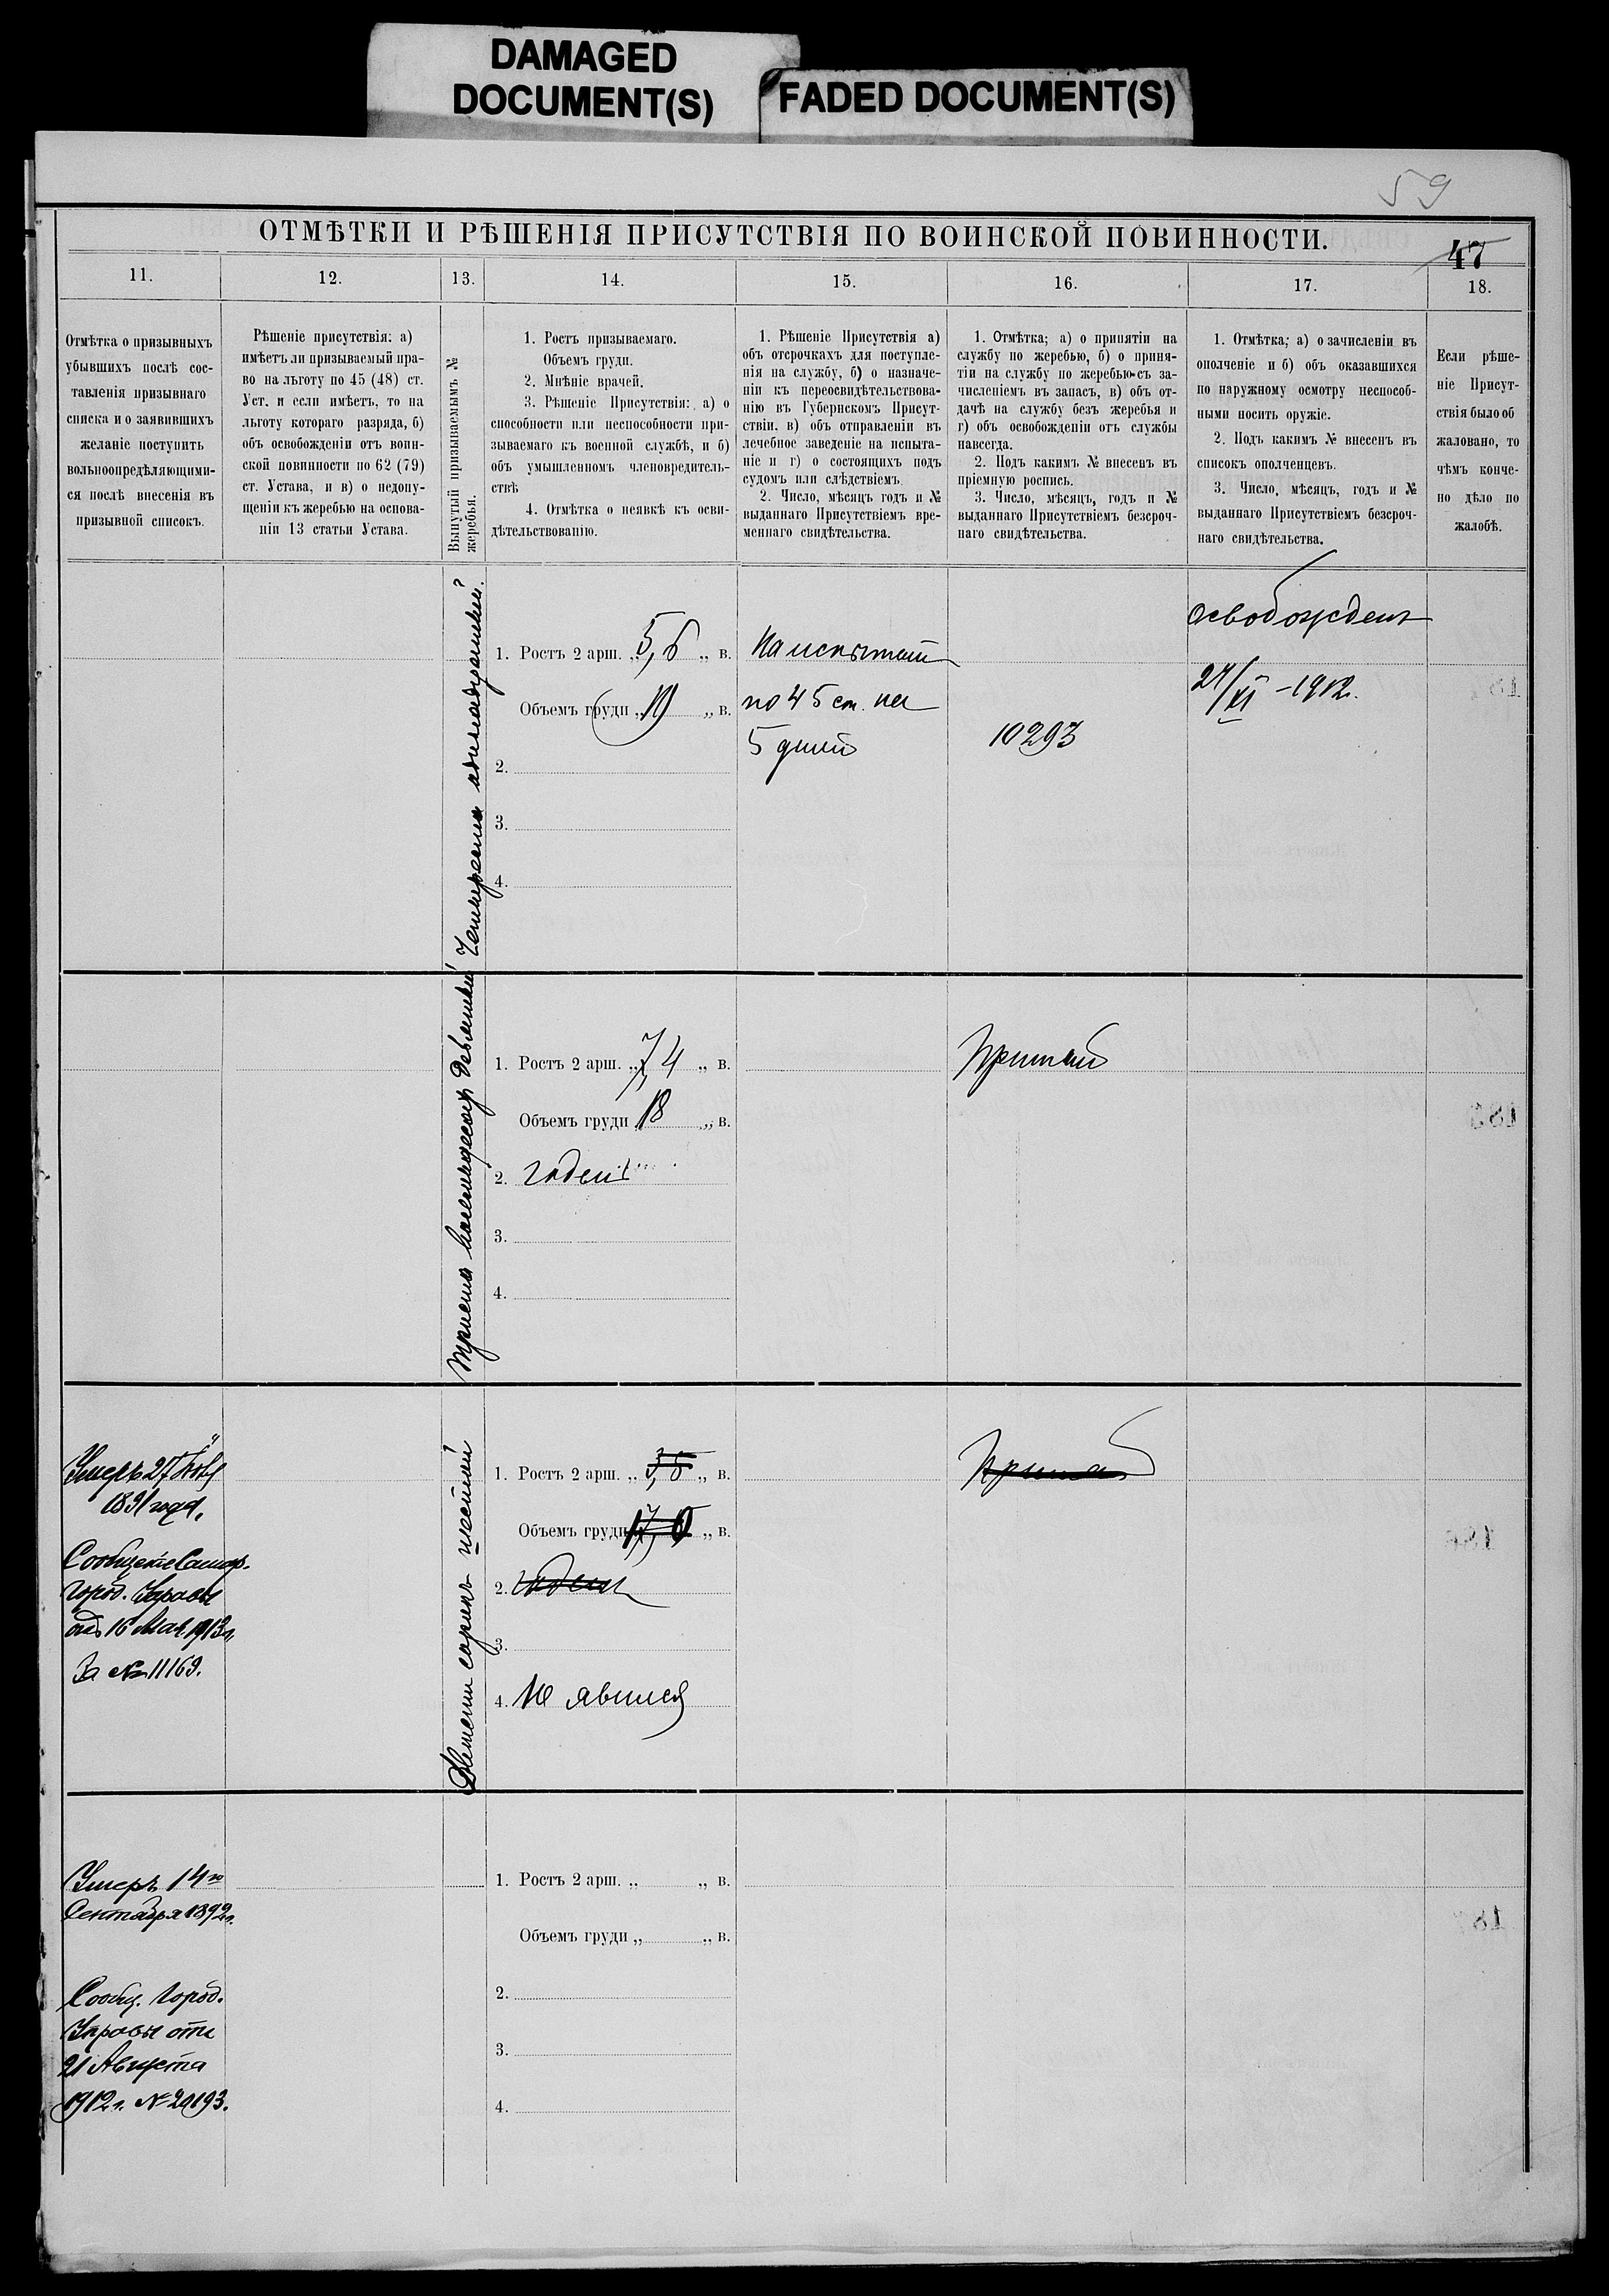 DAMAGED
DOCUMENT(S)
FADED DOCUMENT(S)
59
ОТМѢТКИ И РѢШЕНІЯ ПРИСУТСТВІЯ ПО ВОИНСКОЙ ПОВИННОСТИ.
47
11.
12.
13.
14.
15.
16.
17.
18.
Отмѣтка о призывныхъ
убывшихъ послѣ сос-
тавленія призывнаго
списка и о заявившихъ
желаніе поступить
вольноопредѣляющими-
ся послѣ внесенія въ
призывной списокъ.
Рѣшеніе присутствія: а)
имѣетъ ли призываемый пра-
во на льготу по 45 (48) ст.
Уст. и если имѣетъ, то на
льготу котораго разряда, б)
объ освобожденіи отъ воин-
ской повинности по 62 (79)
ст. Устава, и в) о недопу-
щеніи къ жеребью на основа-
ніи 13 статьи Устава.
Вынутый призываемымъ №
жеребья.
1. Ростъ призываемаго.
Объемъ груди.
2. Мнѣніе врачей.
3. Рѣшеніе Присутствія: а) о
способности или неспособности при-
зываемаго къ военной службѣ, и б)
объ умышленномъ членовредитель-
ствѣ
4. Отмѣтка о неявкѣ къ осви-
дѣтельствованію.
1. Рѣшеніе Присутствія а)
объ отсрочкахъ для поступле-
нія на службу, б) о назначе-
ніи къ переосвидѣтельствова-
нію въ Губернскомъ Присут-
ствіи. в) объ отправленіи въ
лечебное заведеніе на испыта-
ніе и г) о состоящихъ подъ
судомъ или слѣдствіемъ.
2. Число, мѣсяцъ годъ и №
выданнаго Присутствіемъ вре-
меннаго свидѣтельства.
1. Отмѣтка; а) о принятіи на
службу по жеребью, б) о приня-
тіи на службу по жеребью съ за-
численіемъ въ запасъ, в) объ от-
дачѣ на службу безъ жеребья и
г) объ освобожденіи отъ службы
навсегда.
2. Подъ какимъ № внесенъ въ
пріемную роспись.
3. Число, мѣсяцъ, годъ и №
выданнаго Присутствіемъ безсроч-
наго свидѣтельства.
1. Отмѣтка; а) о зачисленіи въ
ополченіе и б) объ оказавшихся
по наружному осмотру неспособ-
ными носить оружіе.
2. Подъ какимъ № внесенъ въ
списокъ ополченцевъ.
3. Число, мѣсяцъ, годъ и №
выданнаго Присутствіемъ безсроч-
наго свидѣтельства.
Если рѣше-
ніе Присут-
ствія было об
жаловано, то
чѣмъ конче-
но дѣло по
жалобѣ.
Четыреста одиннадцатый
1. Ростъ 2 арш. „ 5,6 „ в.
Объемъ груди „ 19 „ в.
2.
3.
4.
На испытаніе
по 45 ст. на
5 дней
10293
освобожденъ
24/XI – 1912 г.
Триста восемьдесятъ девятый
1. Ростъ 2 арш. „ 7,4 „ в.
Объемъ груди 18 „ в.
2. годенъ
3.
4.
Принятъ
Умеръ 27 Ноя
1891 года.
Сообщеніе Самар.
Город. Управы
отъ 16 Мая 1913 г.
За № 11169.
Двѣсти сорокъ шестой
1. Ростъ 2 арш. „ 3,6 „ в.
Объемъ груди „ в.
2. годенъ
3.
4. не явился
Принятъ
Умеръ 14 го
Сентября 1892 г.
Сообщ. Город.
Управы отъ
21 Августа
1912 г. № 20193.
1. Ростъ 2 арш. „ „ в.
Объемъ груди „ „ в.
2.
3.
4.